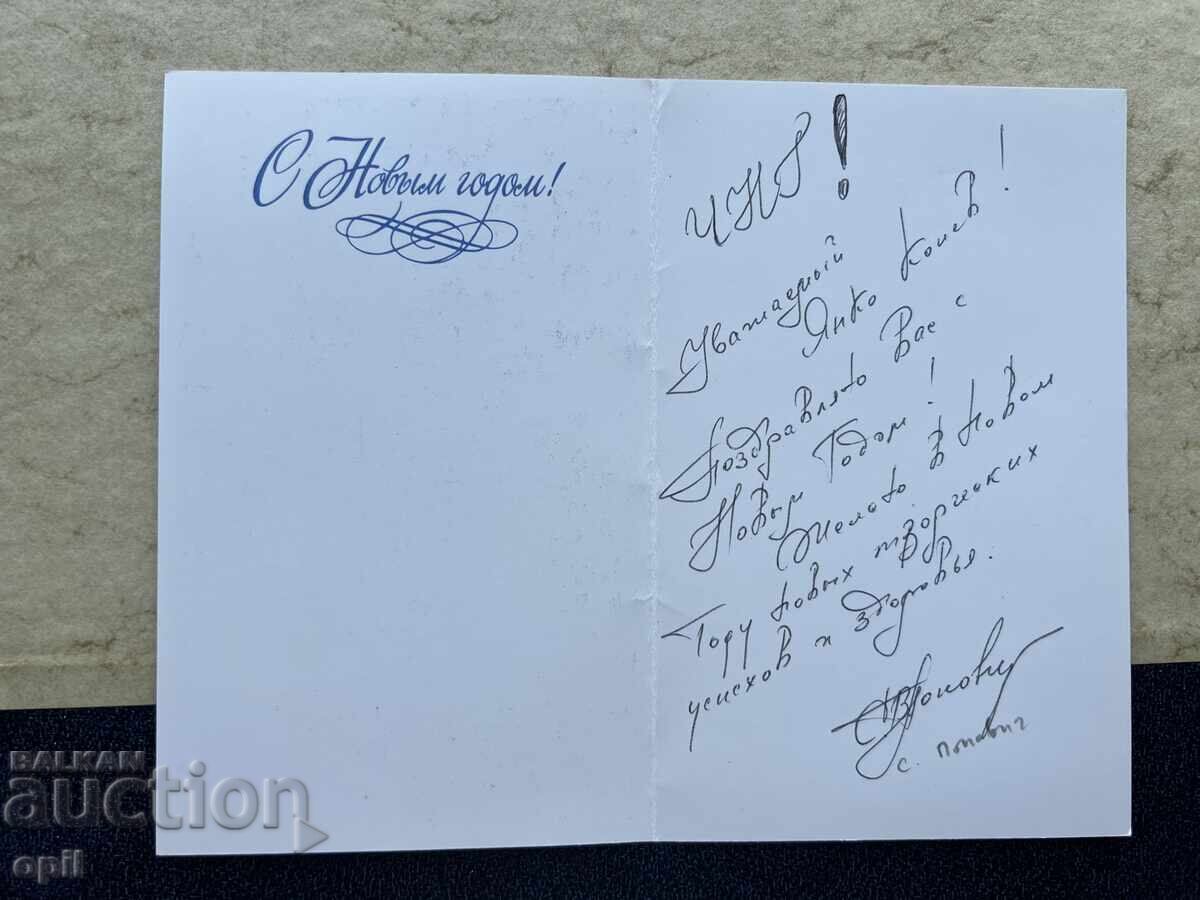 С Новым годом!
ЧНГ!
Уважаемый
Янко Конев!
Поздравляю Вас с
Новым Годом!
Желаю в Новом
Году новых творческих
успехов и здоровья.
С. Попович
BALKAN
auction
opil